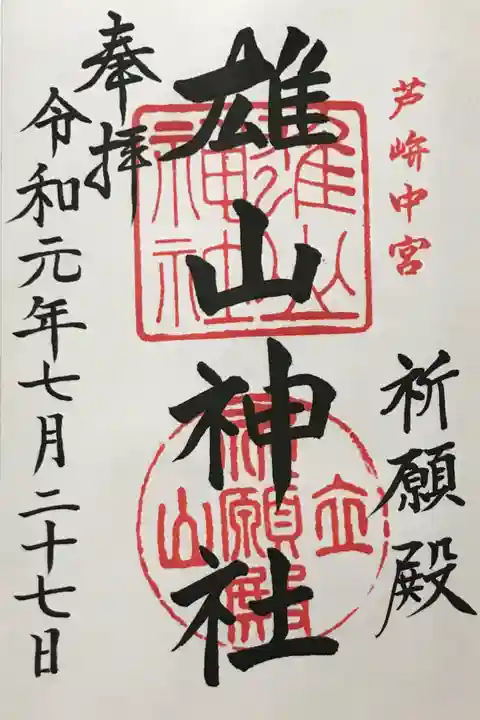 芦峅中宮
祈願殿
雄山神社
雄山
神社
立山
祈願殿
奉拝
令和元年七月二十七日